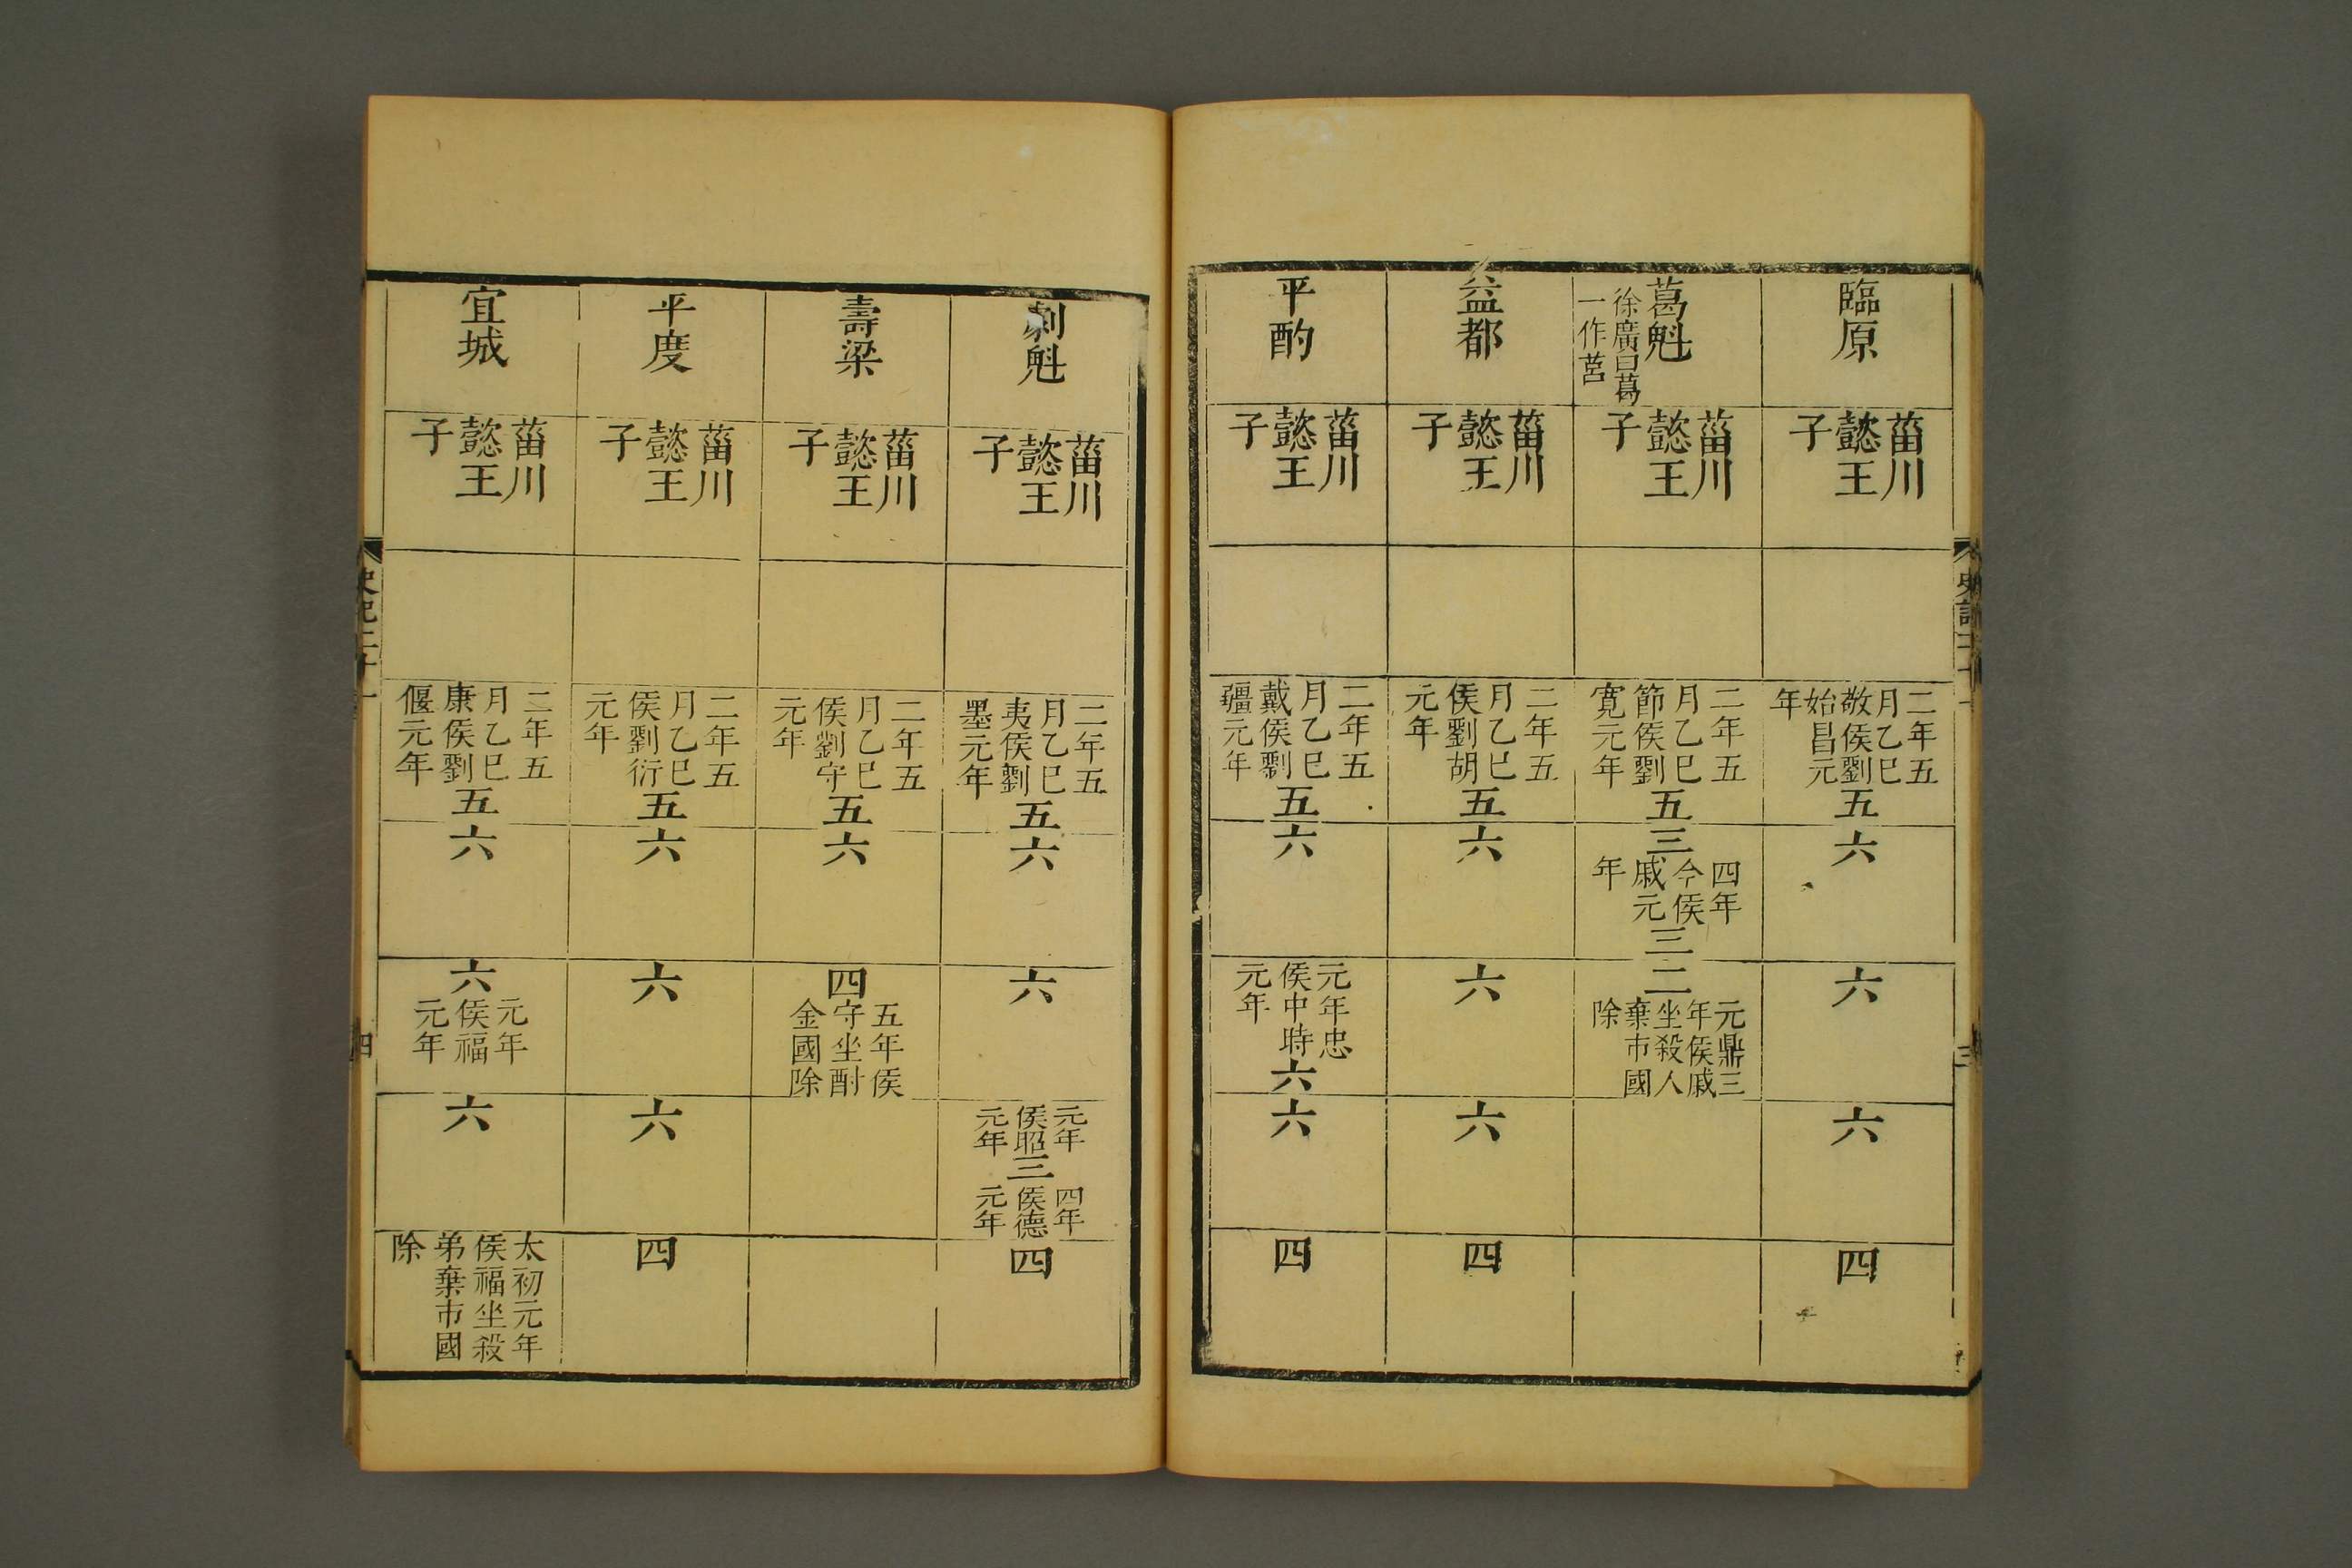 臨原
菑川
懿王
子
二年五
月乙巳
敬侯劉
始昌元
年
五
六
六
六
四
葛魁
徐廣曰葛
一作莒
菑川
懿王
子
二年五
月乙巳
節侯劉
寛元年
五
三
四年
今侯
戚元
年
三
二
元鼎三
年侯戚
坐殺人
棄市國
除
益都
菑川
懿王
子
二年五
月乙巳
侯劉胡
元年
五
六
六
六
四
平酌
菑川
懿王
子
二年五
月乙巳
戴侯劉
彊元年
五
六
元年忠
侯中時
元年
六
六
四
劇魁
菑川
懿王
子
二年五
月乙巳
夷侯劉
墨元年
五
六
六
元年
侯昭
元年
三
四年
侯德
元年
四
壽梁
菑川
懿王
子
二年五
月乙巳
侯劉守
元年
五
六
四
五年侯
守坐酎
金國除
平度
菑川
懿王
子
二年五
月乙巳
侯劉衍
元年
五
六
六
六
四
宜城
菑川
懿王
子
二年五
月乙巳
康侯劉
偃元年
五
六
六
元年
侯福
元年
六
太初元年
侯福坐殺
弟棄市國
除